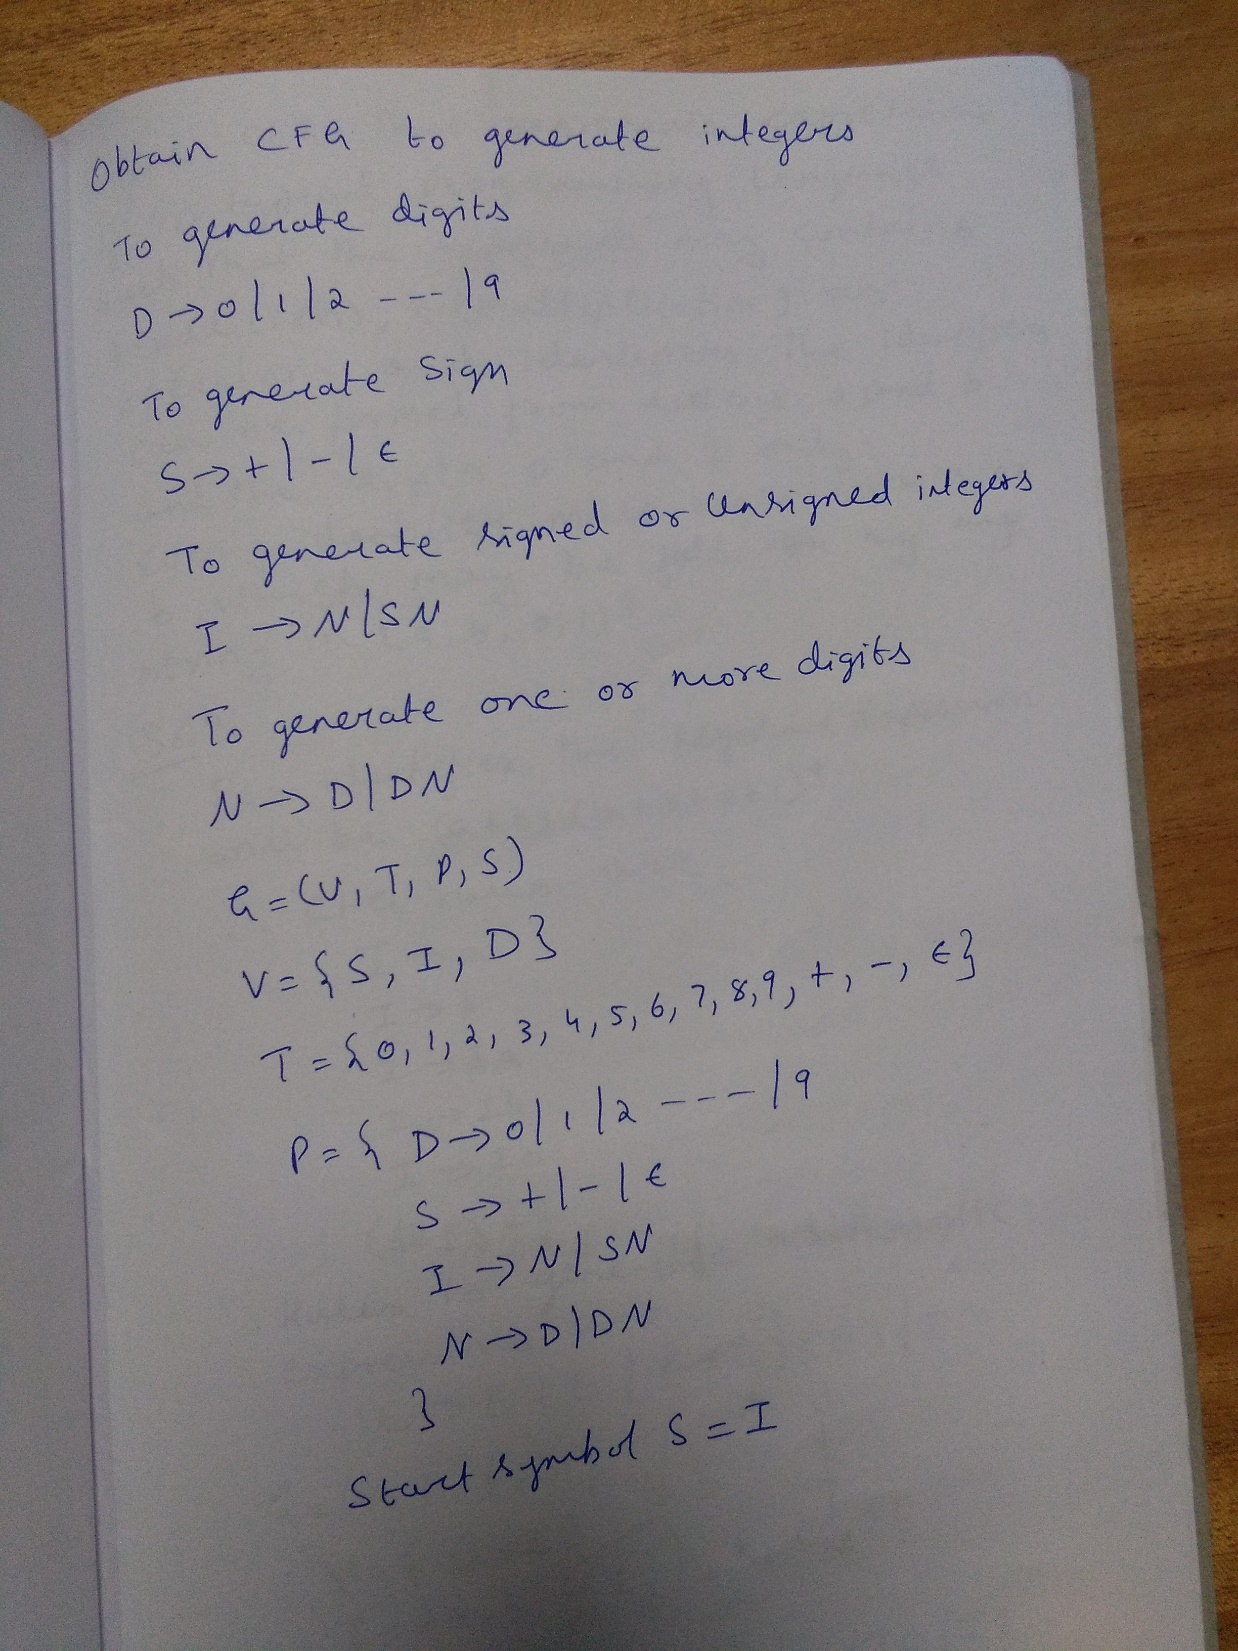 Obtain CFG to generate integers
To generate digits
D → 0 | 1 | 2 --- | 9
To generate Sign
S → + | - | ϵ
To generate signed or Unsigned integers
I → N | SN
To generate one or more digits
N → D | DN
G = (V, T, P, S)
V = { S, I, D }
T = { 0, 1, 2, 3, 4, 5, 6, 7, 8, 9, +, -, ϵ }
P = { D → 0 | 1 | 2 ---- | 9
S → + | - | ϵ
I → N | SN
N → D | DN
}
Start symbol S = I